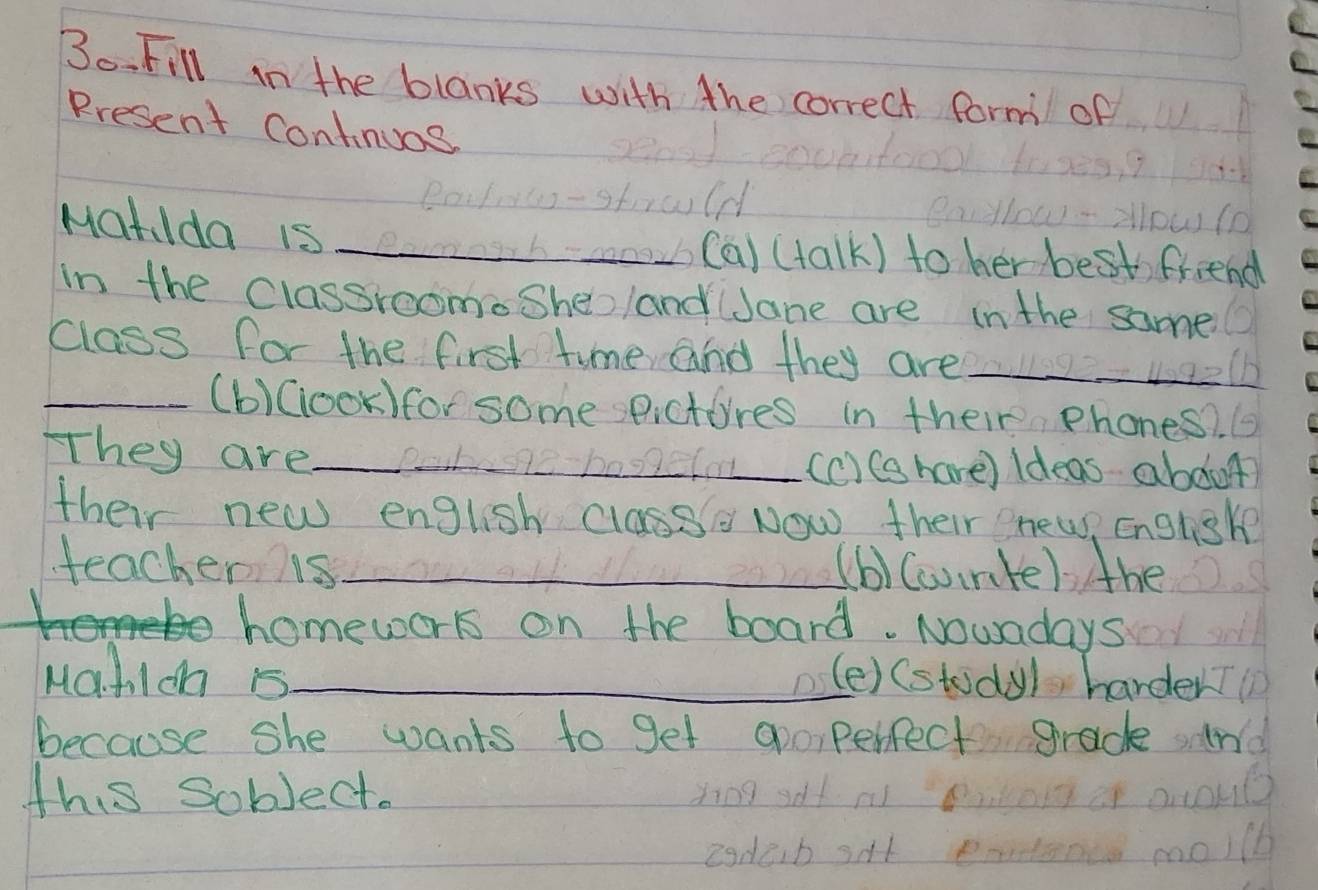 3.- Fill in the blanks with the correct form of
Present Continuos
Matilda is ____________ (a) (talk) to her best friend
in the classroom. She and Jane are in the same
class for the first time and they are ____________
______ (b) (look) for some pictures in their phones.
They are ____________ (c) (share) ideas about
their new english class. Now their new English
teacher is ____________ (b) (write) the
homebo homework on the board. Nowadays
Matilda is ____________ (e) (study) harder
because she wants to get a perfect grade in
this Sobject.